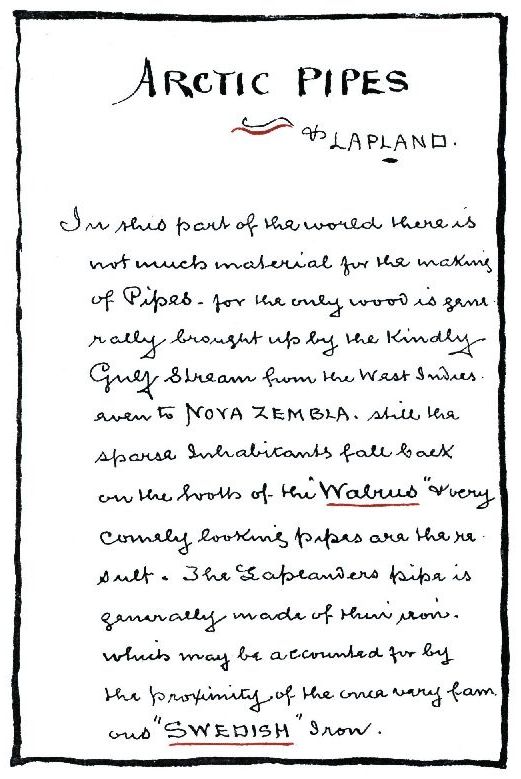 ARCTIC PIPES
& LAPLAND.
In this part of the world there is
not much material for the making
of Pipes - for the only wood is gene
rally brought up by the Kindly
Gulf Stream from the West Indies.
even to NOVA ZEMBLA. still the
sparse Inhabitants fall back
on the tooth of - the "Walrus" & very
comely looking pipes are the re
sult. The Laplanders pipe is
generally made of thin iron.
which may be accounted for by
the proximity of the once very fam
ous "SWEDISH" Iron.